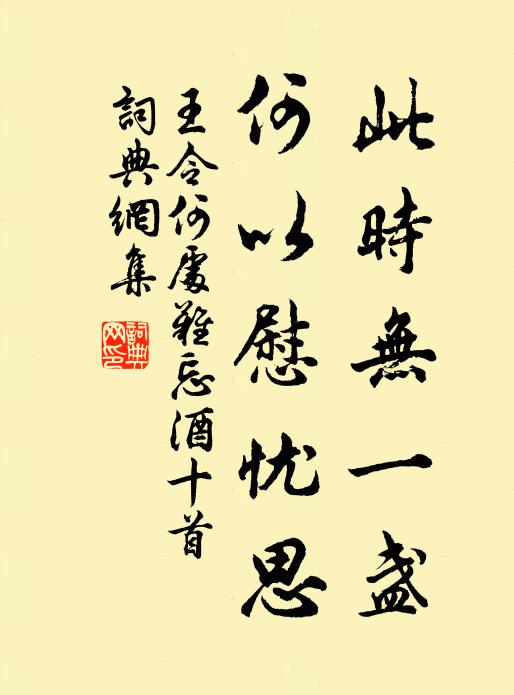 此時無一盞
何以慰忧思
王令何處難忘酒十首
詞典網集
詞典网印